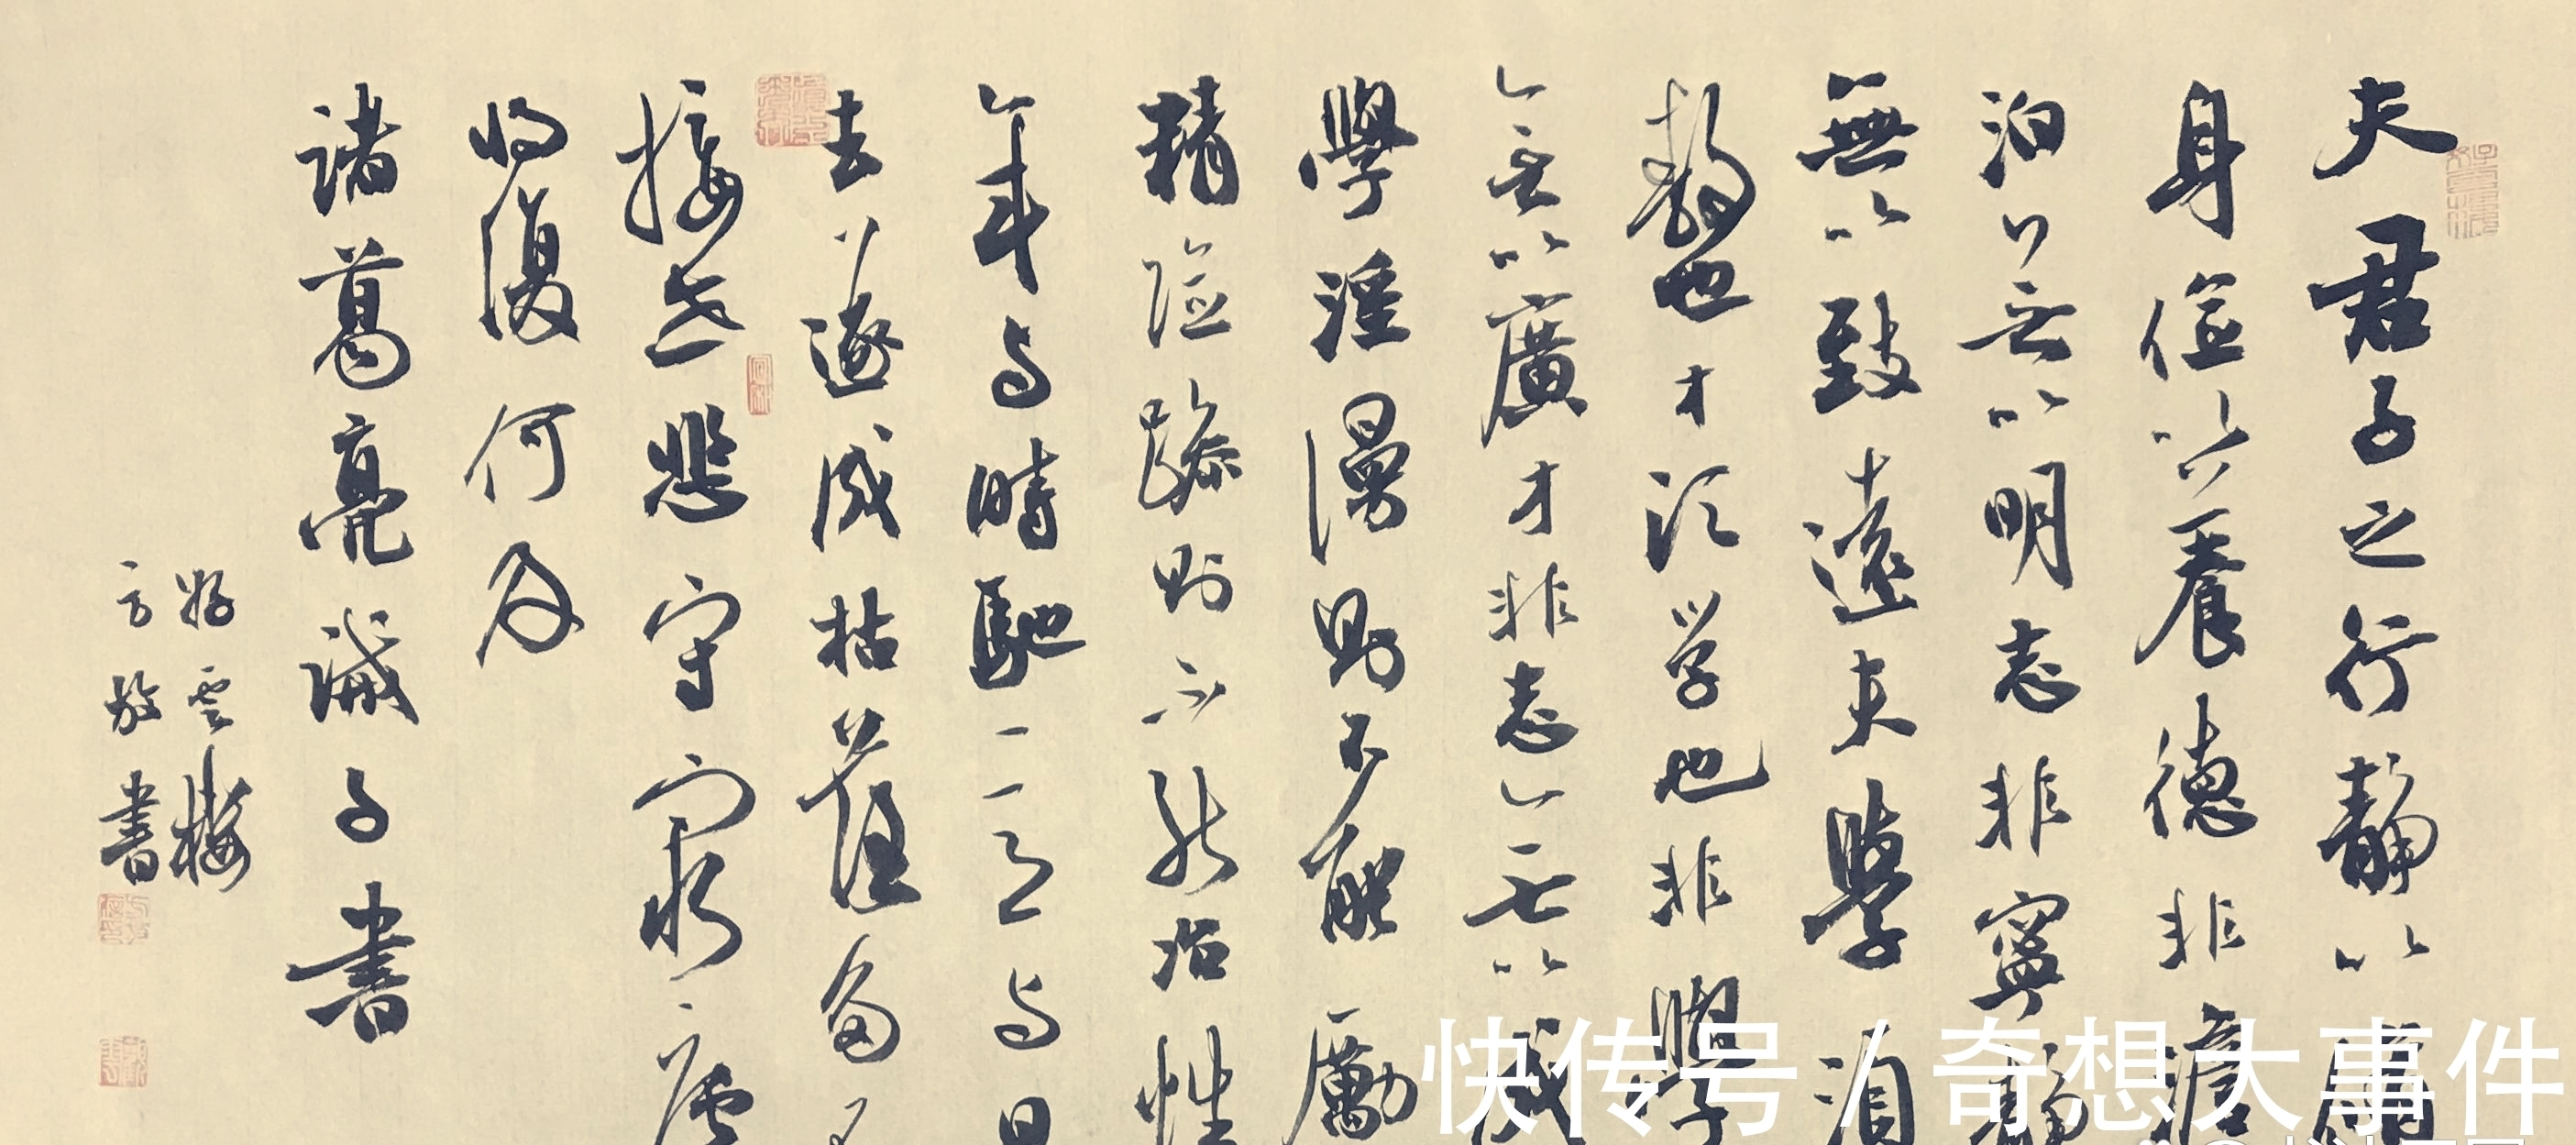 夫君子之行靜以脩
身儉以養德非澹
泊无以明志非寧靜
無以致遠夫學須
靜也才須学也非學
无以廣才非志无以成
學淫漫則不能勵
精險躁則不能治性
年与時馳意与日
去遂成枯落多不
接世悲守窮廬
将復何及
諸葛亮誡子書
好雲樓
方放書
快传号 / 奇想大事件